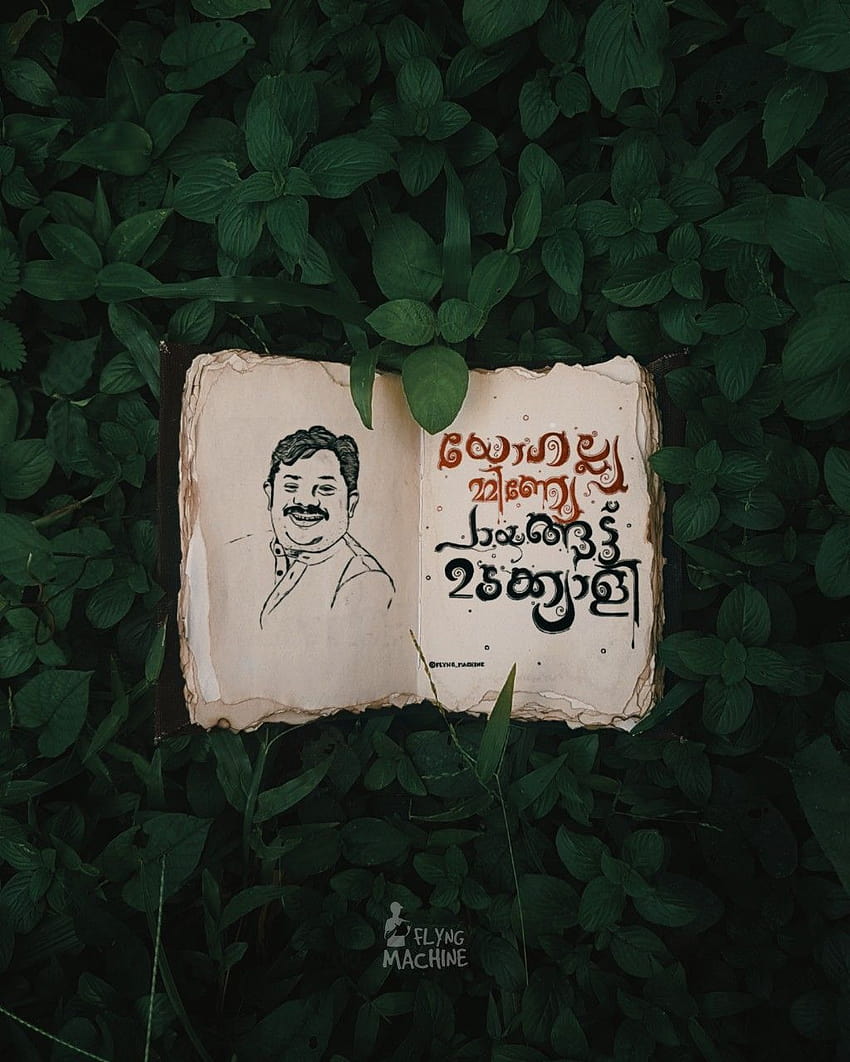 യോഗല്ല്യ
മ്മിണ്യേ
പായങ്ങട്ട്
മടക്ക്യാളി
©FLYNG_MACHINE
FLYNG
MACHINE